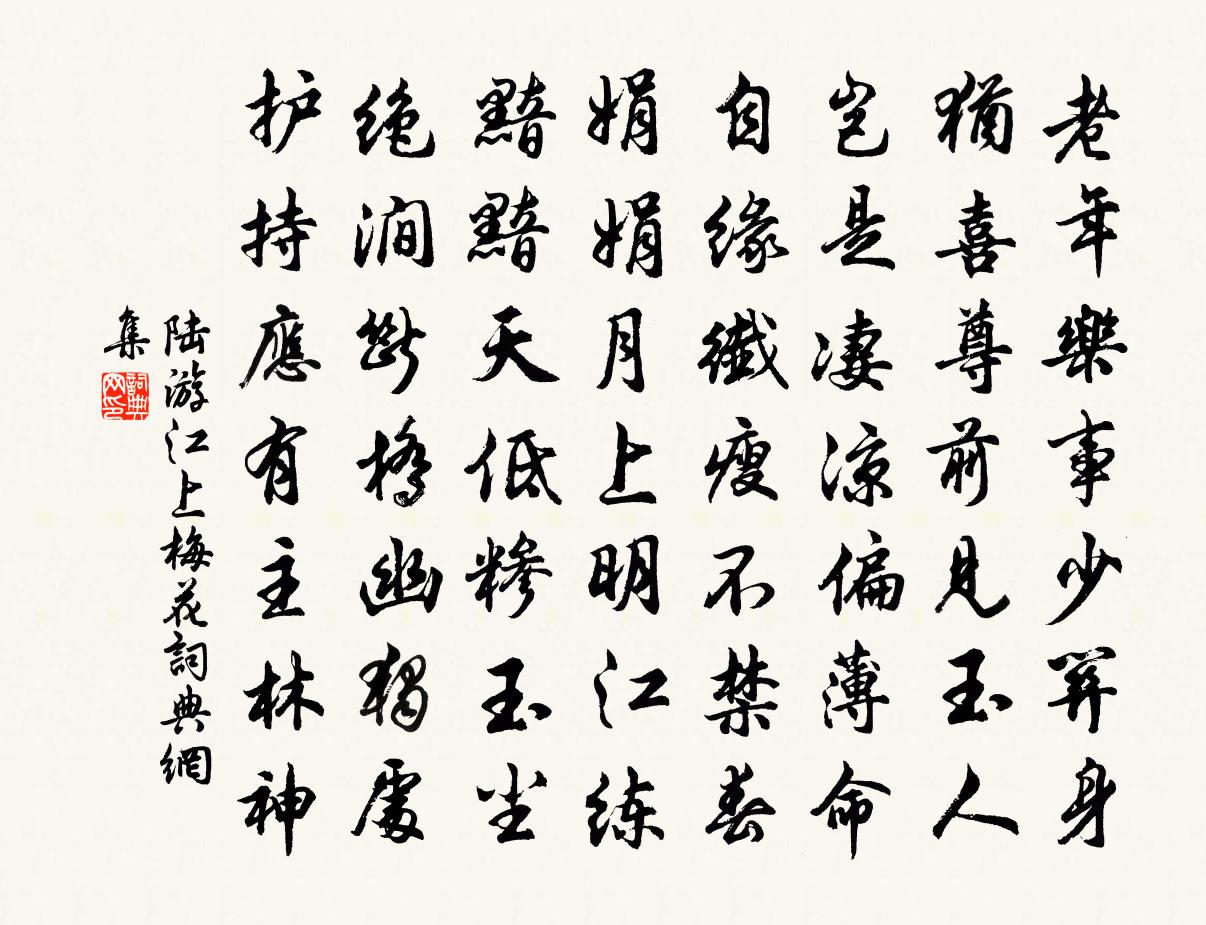 老年樂事少關身
猶喜尊前見玉人
豈是凄涼偏薄命
自緣纖瘦不禁春
娟娟月上明江练
黯黯天低糝玉尘
絶澗斷橋幽獨處
护持應有主林神
陆游江上梅花詞典網
集
詞典
网印